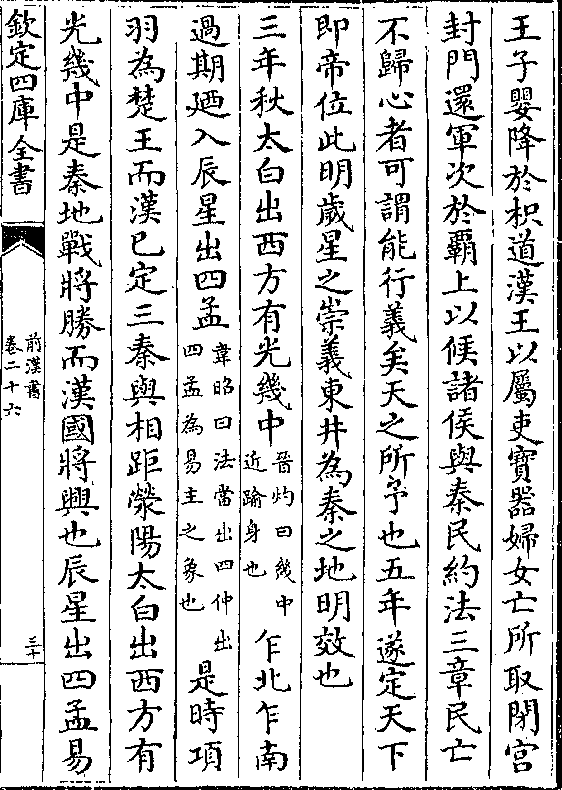 王子嬰降於枳道漢王以屬吏寶器婦女亡所取閉宮
封門還軍次於霸上以候諸侯與秦民約法三章民亡
不歸心者可謂能行義矣天之所予也五年遂定天下
即帝位此明歲星之崇義東井為秦之地明效也
三年秋太白出西方有光幾中晉灼曰幾中近踰身也乍北乍南
過期廼入辰星出四孟韋昭曰法當出四仲出四孟為易主之象也是時項
羽為楚王而漢已定三秦與相距滎陽太白出西方有
光幾中是秦地戰將勝而漢國將興也辰星出四孟易
欽定四庫全書
前漢書
卷二十六
三十